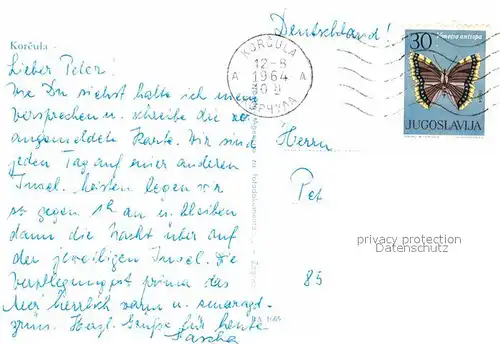 Deutschland!
Korčula -
Lieber Peter!
Wie Du siehst halte ich mein
Versprechen u. schreibe die
angemeldete Karte. Wir sind
jeden Tag auf einer anderen
Insel. Meisten legen wir
so gegen 5h an u. bleiben
dann die Nacht über auf
der jeweiligen Insel. Die
Verpflegung ist prima das
Meer herrlich warm u. smaragd-
grün. Herzl. Grüße für heute
Sascha
KORČULA
12-8
1964
A A
30
Vanessa antiopa
JUGOSLAVIJA
Herrn
Pet
85
privacy protection
Datenschutz